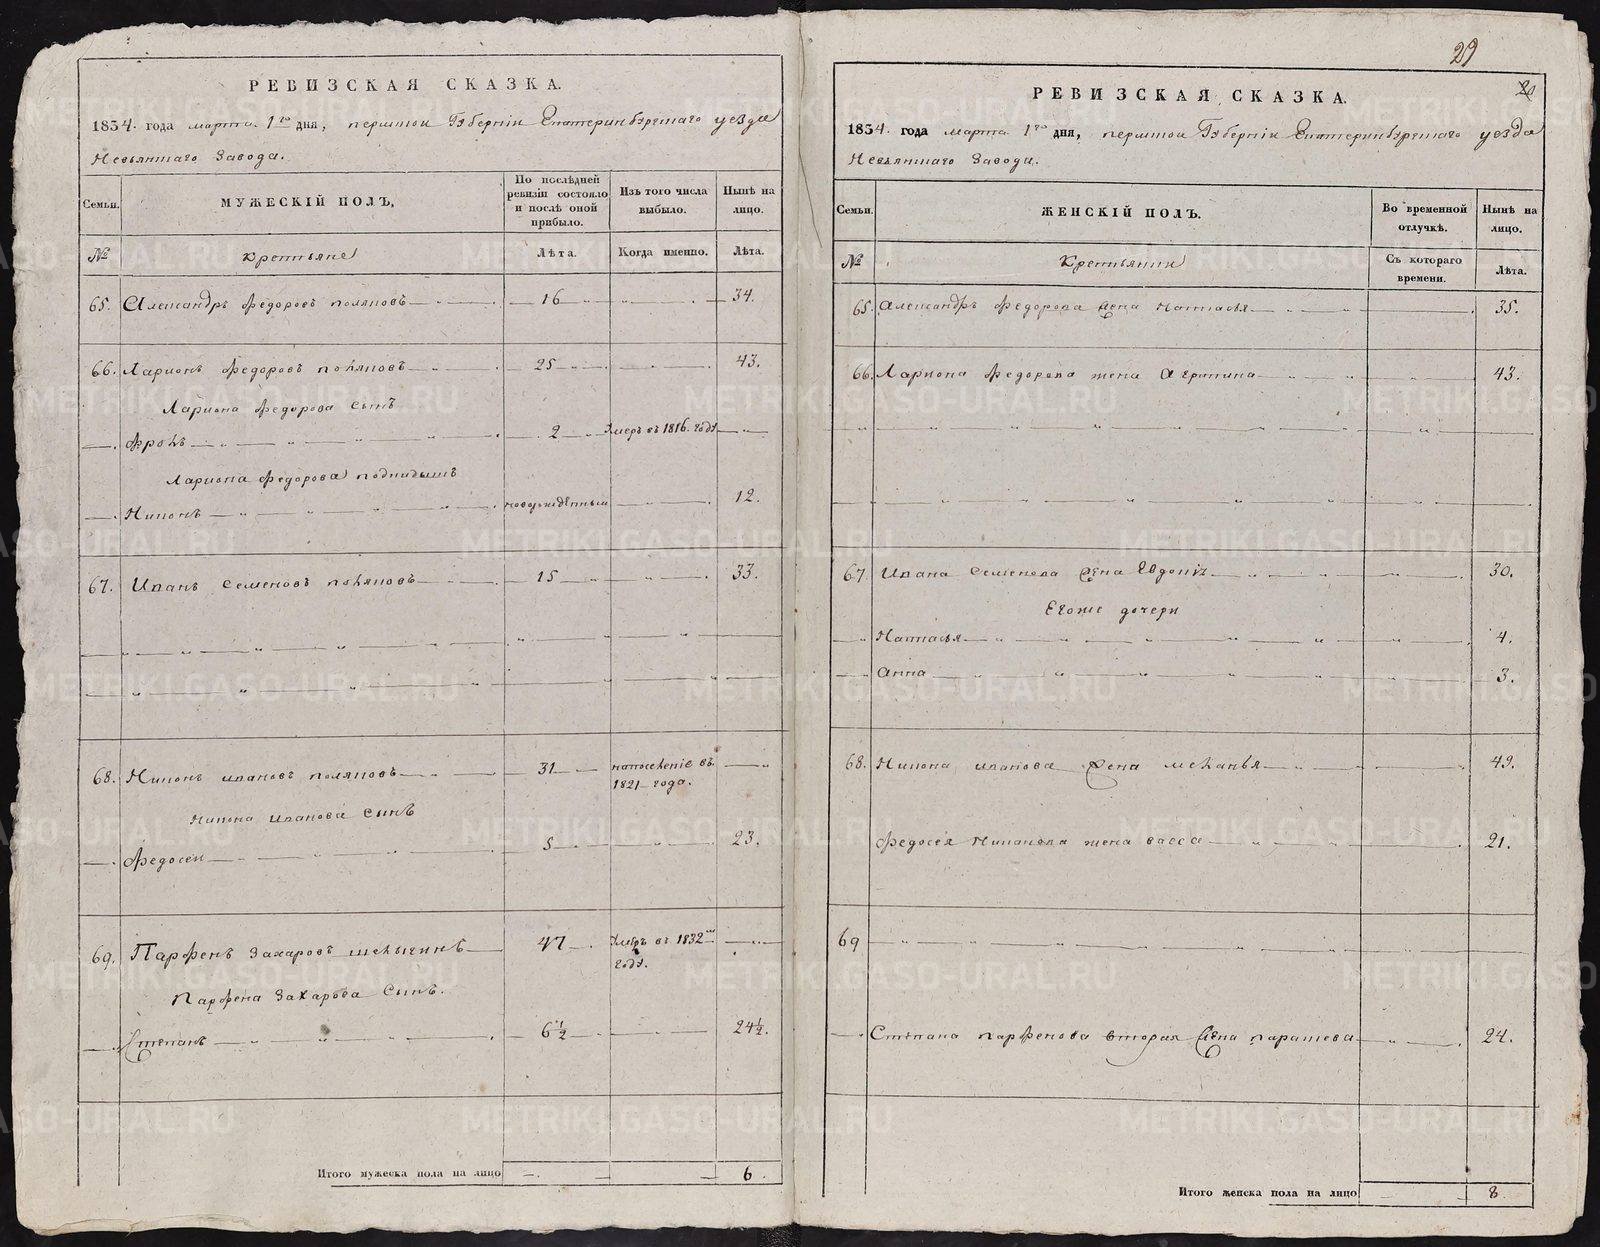 РЕВИЗСКАЯ СКАЗКА.
1834. года марта 1го дня, пермской Губернiи Екатеринбургскаго уезда
Невьянскаго Завода.
Семьи.
МУЖЕСКIЙ ПОЛЪ,
По послѣдней ревизiи состояло и послѣ оной прибыло.
Изъ того числа выбыло.
Нынѣ на лицо.
№
Крестьяне
Лѣта.
Когда именно.
Лѣта.
65. Александръ Федоровъ поляковъ 16 34.
66. Ларионъ Федоровъ поляковъ 25 43.
Лариона Федорова сынъ
Фролъ 2 Умеръ въ 1816. году
Лариона Федорова подкидышъ
Никонъ новорожденный 12.
67. Иванъ Семеновъ поляковъ 15 33.
68. Никонъ Ивановъ поляковъ 31 на поселенiе въ 1821 года.
Никона Иванова Сынъ
Федосей 5 23.
69. Парфенъ Захаровъ 47 Умеръ въ 1832 году.
Парфена Захарова Сынъ.
Степанъ 6 1/2 24 1/2.
Итого мужеска пола на лицо 6.
29
20
РЕВИЗСКАЯ СКАЗКА.
1834. года марта 1го дня, пермской Губернiи Екатеринбургскаго уезда
Невьянскаго Завода.
Семьи.
ЖЕНСКIЙ ПОЛЪ.
Во временной отлучкѣ.
Нынѣ на лицо.
№
Крестьянки
Съ котораго времени.
Лѣта.
65. Александръ Федорова жена Настасья 35.
66. Лариона Федорова жена Агрипина 43.
67 Ивана Семенова жена Евдокiя 30.
Егоже дочери
Настасья 4.
Анна 3.
68. Никона Иванова жена меланья 49.
Федосея Никонова жена васса 21.
69
Степана парфенова вторая жена парасковья 24.
Итого женска пола на лицо 8
METRIKI.GASO-URAL.RU